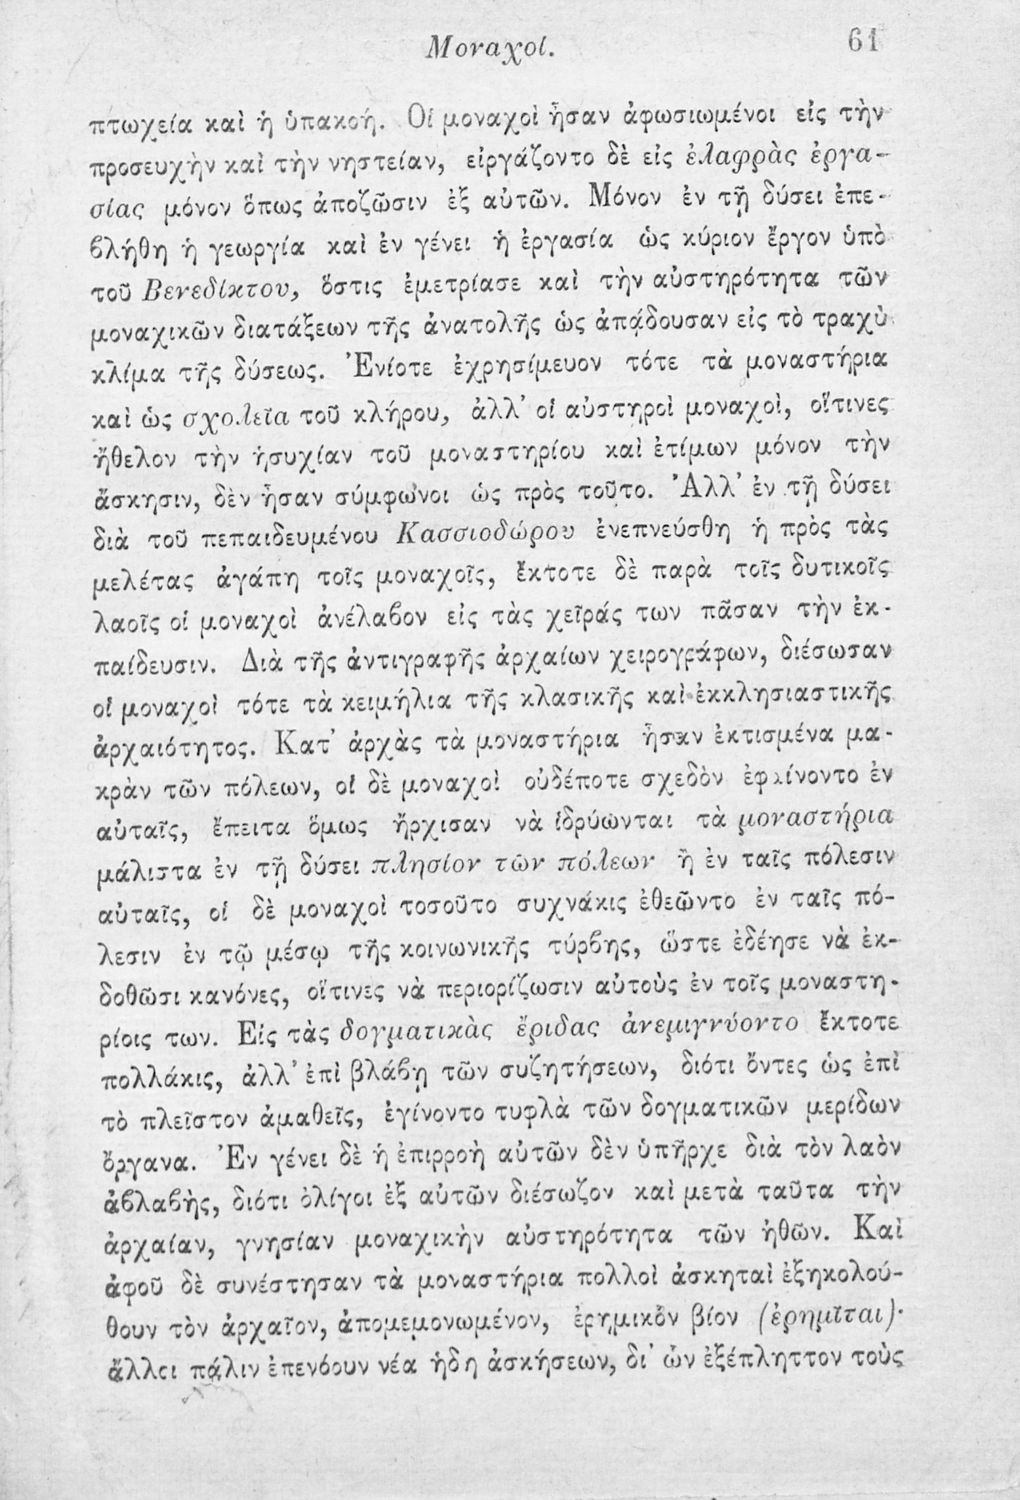 Μοναχοί. 61
πτωχεία καὶ ἡ ὑπακοή. Οἱ μοναχοὶ ἦσαν ἀφωσιωμένοι εἰς τὴν
προσευχὴν καὶ τὴν νηστείαν, εἰργάζοντο δὲ εἰς ἐλαφρὰς ἐργα-
σίας μόνον ὅπως ἀποζῶσιν ἐξ αὐτῶν. Μόνον ἐν τῇ δύσει ἐπε-
βλήθη ἡ γεωργία καὶ ἐν γένει ἡ ἐργασία ὡς κύριον ἔργον ὑπὸ
τοῦ Βενεδίκτου, ὅστις ἐμετρίασε καὶ τὴν αὐστηρότητα τῶν
μοναχικῶν διατάξεων τῆς ἀνατολῆς ὡς ἀπᾴδουσαν εἰς τὸ τραχὺ
κλίμα τῆς δύσεως. Ἐνίοτε ἐχρησίμευον τότε τὰ μοναστήρια
καὶ ὡς σχολεῖα τοῦ κλήρου, ἀλλ' οἱ αὐστηροὶ μοναχοὶ, οἵτινες
ἤθελον τὴν ἡσυχίαν τοῦ μοναστηρίου καὶ ἐτίμων μόνον τὴν
ἄσκησιν, δὲν ἦσαν σύμφωνοι ὡς πρὸς τοῦτο. Ἀλλ' ἐν τῇ δύσει
διὰ τοῦ πεπαιδευμένου Κασσιοδώρου ἐνεπνεύσθη ἡ πρὸς τὰς
μελέτας ἀγάπη τοῖς μοναχοῖς, ἔκτοτε δὲ παρὰ τοῖς δυτικοῖς
λαοῖς οἱ μοναχοὶ ἀνέλαβον εἰς τὰς χεῖράς των πᾶσαν τὴν ἐκ-
παίδευσιν. Διὰ τῆς ἀντιγραφῆς ἀρχαίων χειρογράφων, διέσωσαν
οἱ μοναχοὶ τότε τὰ κειμήλια τῆς κλασικῆς καὶ ἐκκλησιαστικῆς
ἀρχαιότητος. Κατ' ἀρχὰς τὰ μοναστήρια ἦσαν ἐκτισμένα μα-
κρὰν τῶν πόλεων, οἱ δὲ μοναχοὶ οὐδέποτε σχεδὸν ἐφαίνοντο ἐν
αὐταῖς, ἔπειτα ὅμως ἤρχισαν νὰ ἱδρύωνται τὰ μοναστήρια
μάλιστα ἐν τῇ δύσει πλησίον τῶν πόλεων ἢ ἐν ταῖς πόλεσιν
αὐταῖς, οἱ δὲ μοναχοὶ τοσοῦτο συχνάκις ἐθεῶντο ἐν ταῖς πό-
λεσιν ἐν τῷ μέσῳ τῆς κοινωνικῆς τύρβης, ὥστε ἐδέησε νὰ ἐκ-
δοθῶσι κανόνες, οἵτινες νὰ περιορίζωσιν αὐτοὺς ἐν τοῖς μοναστη-
ρίοις των. Εἰς τὰς δογματικὰς ἔριδας ἀνεμιγνύοντο ἔκτοτε
πολλάκις, ἀλλ' ἐπὶ βλάβῃ τῶν συζητήσεων, διότι ὄντες ὡς ἐπὶ
τὸ πλεῖστον ἀμαθεῖς, ἐγίνοντο τυφλὰ τῶν δογματικῶν μερίδων
ὄργανα. Ἐν γένει δὲ ἡ ἐπιρροὴ αὐτῶν δὲν ὑπῆρχε διὰ τὸν λαὸν
ἀβλαβὴς, διότι ὀλίγοι ἐξ αὐτῶν διέσωζον καὶ μετὰ ταῦτα τὴν
ἀρχαίαν, γνησίαν μοναχικὴν αὐστηρότητα τῶν ἠθῶν. Καὶ
ἀφοῦ δὲ συνέστησαν τὰ μοναστήρια πολλοὶ ἀσκηταὶ ἐξηκολού-
θουν τὸν ἀρχαῖον, ἀπομεμονωμένον, ἐρημικὸν βίον (ἐρημῖται)·
ἄλλοι πάλιν ἐπενόουν νέα ἤδη ἀσκήσεων, δι' ὧν ἐξέπληττον τοὺς